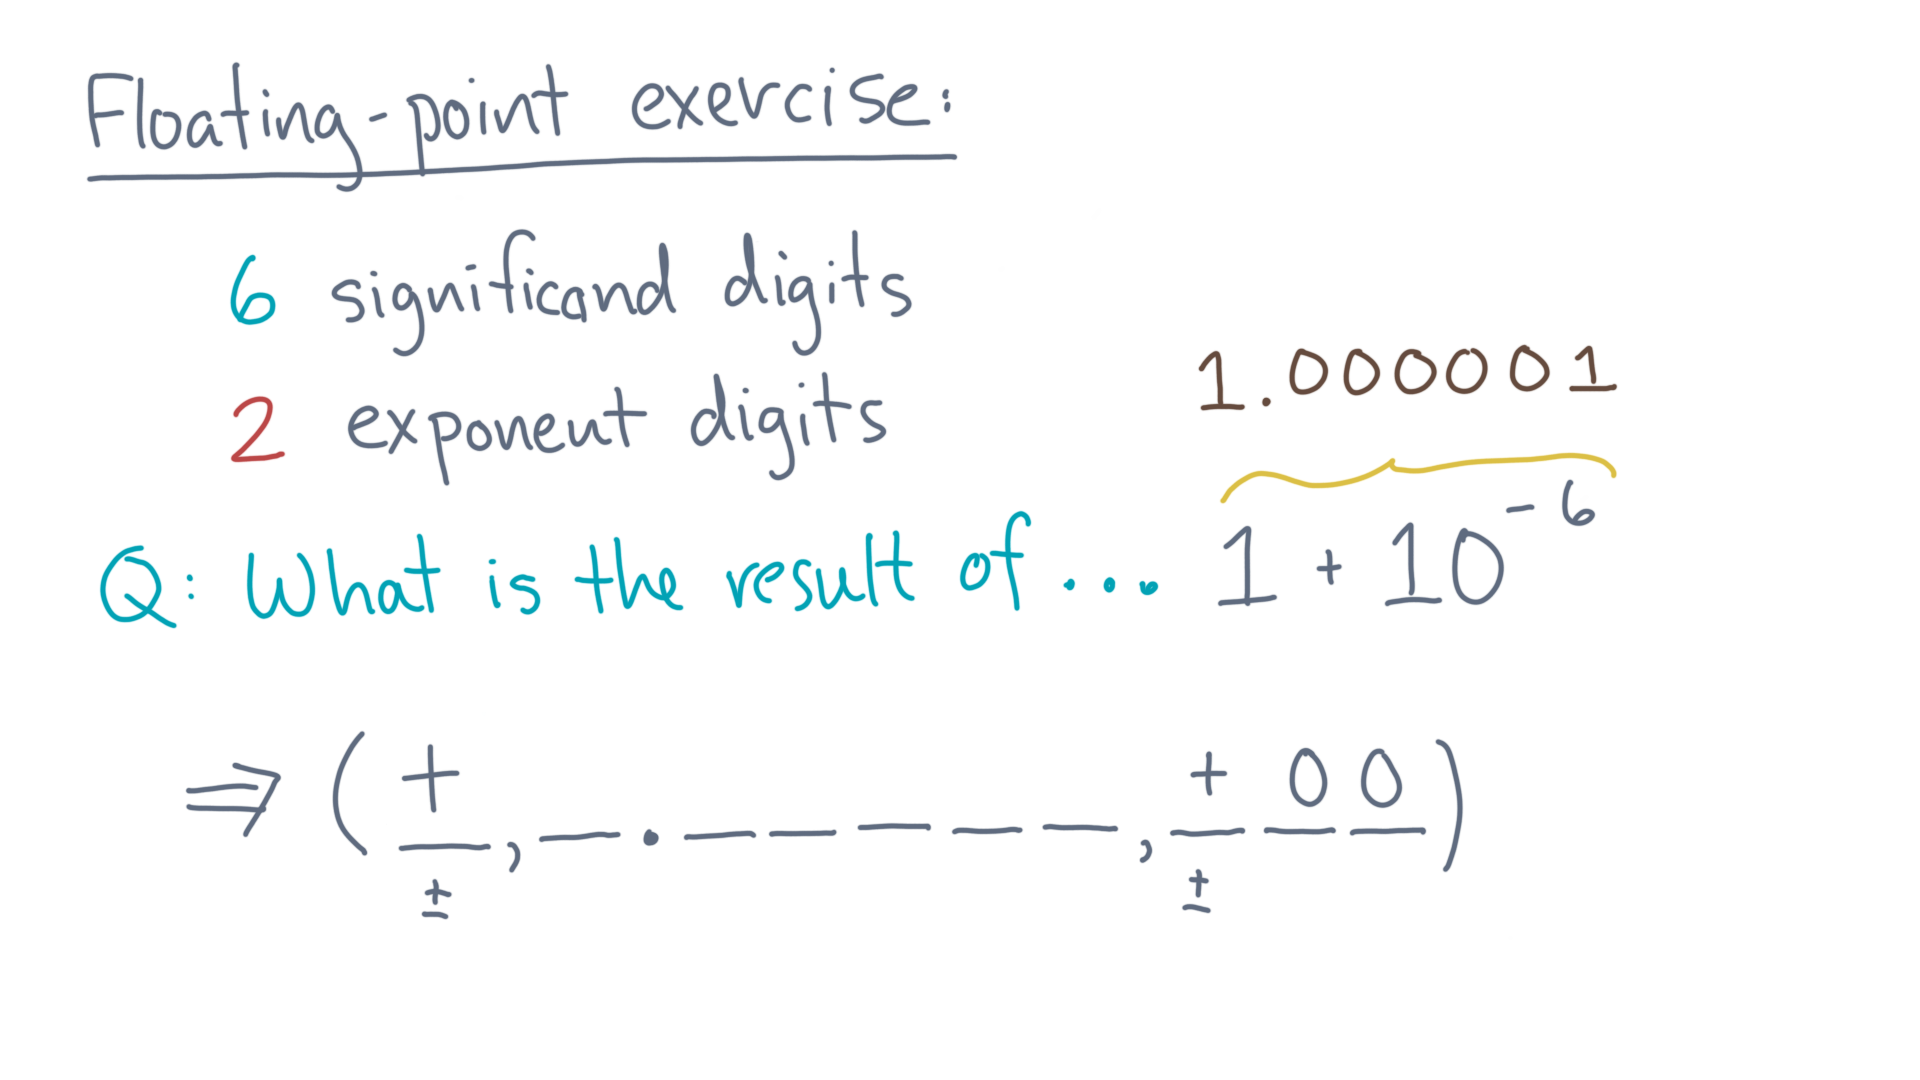 Floating-point exercise:
6 significand digits
2 exponent digits
1.000001
Q: What is the result of... 1 + 10^-6
⇒ ( + , _ . _ _ _ _ _ , + 0 0 )
± ±